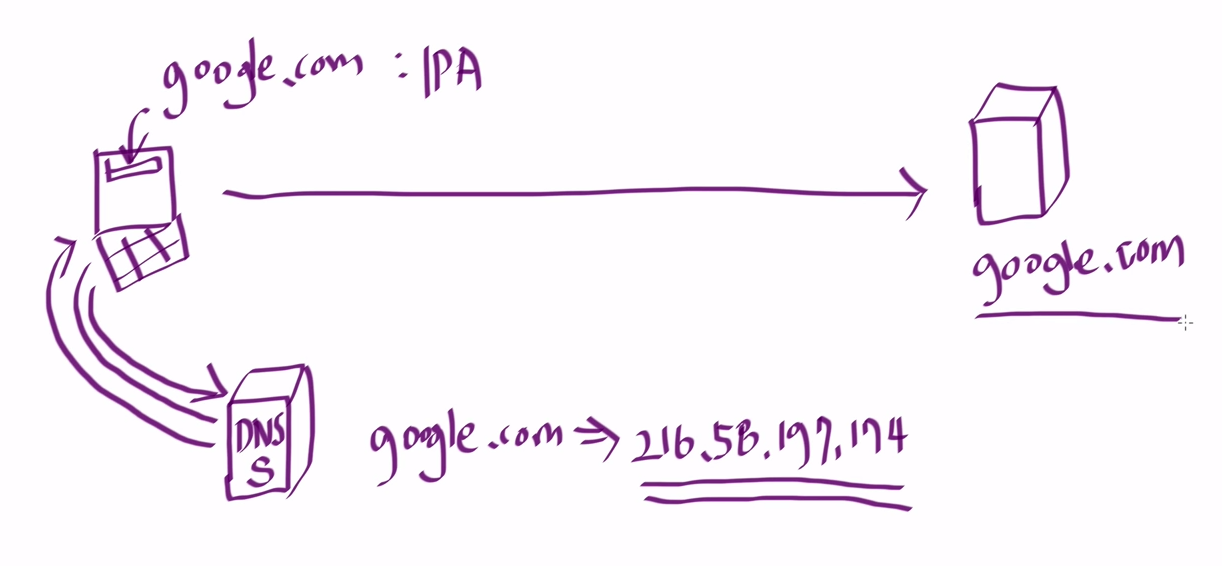 google.com : IPA
google.com
DNS
S
google.com ⇒ 216.58.197.174